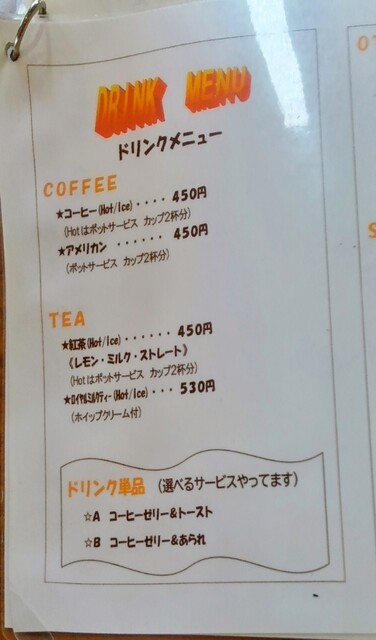 DRINK MENU
ドリンクメニュー
COFFEE
★コーヒー(Hot/Ice)・・・・450円
(Hotはポットサービス カップ2杯分)
★アメリカン ・・・・・・450円
(ポットサービス カップ2杯分)
TEA
★紅茶(Hot/Ice)・・・・・・450円
《レモン・ミルク・ストレート》
(Hotはポットサービス カップ2杯分)
★ロイヤルミルクティー(Hot/Ice)・・・530円
(ホイップクリーム付)
ドリンク単品 (選べるサービスやってます)
☆A コーヒーゼリー&トースト
☆B コーヒーゼリー&あられ